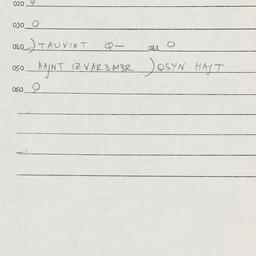 020 O
030 O
040 )TAUVINT O— 041 O
050 HAJNT IZVAR3M3R )OSYN HAJT
060 O